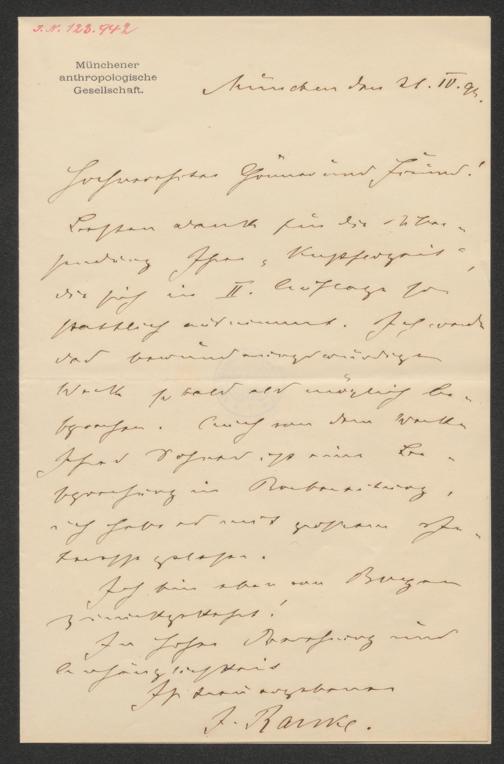 J.N. 123.942
Münchener
anthropologische
Gesellschaft.
München den 21. IV. 93.
Hochverehrter Gönner und Freund!
Besten Dank für die Über-
sendung Ihrer „Kupferzeit“,
die sich in II. Auflage so
stattlich ausnimmt. Ich werde
das bewunderungswürdige
Werk so bald als möglich be-
sprechen. Auch von dem Werke
Ihres Sohnes ist eine Be-
sprechung in Vorbereitung,
ich habe es mit grossem In-
teresse gelesen.
Ich bin eben von Bozen
zurückgekehrt!
In hoher Verehrung und
Anhänglichkeit
Ihr treu ergebener
J. Ranke.